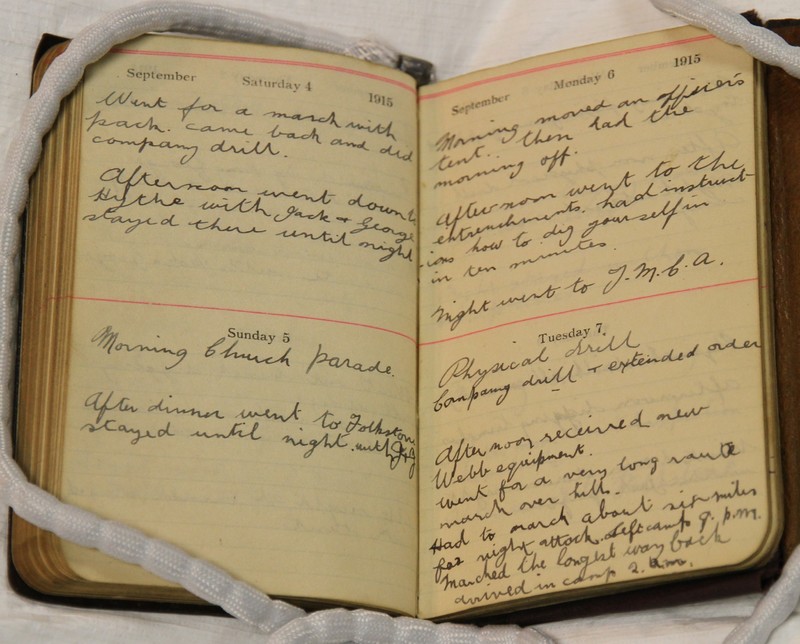 September Saturday 4 1915
Went for a march with
pack. came back and did
company drill.
Afternoon went down to
Hythe with Jack + George
stayed there until night
Sunday 5
Morning Church Parade.
After dinner went to Folkston
stayed until night. with J + G
September Monday 6 1915
Morning moved an officer's
tent. then had the
morning off.
Afternoon went to the
entrenchments. had instruct-
ions how to dig yourself in
in ten minutes.
Night went to Y.M.C.A.
Tuesday 7
Physical drill
Company drill + extended order
Afternoon received new
Webb equipment.
went for a very long route
march over hills.
Had to march about six miles
for night attack. Left camp 9. p.m.
Marched the longest way back
arrived in camp 2. a.m.